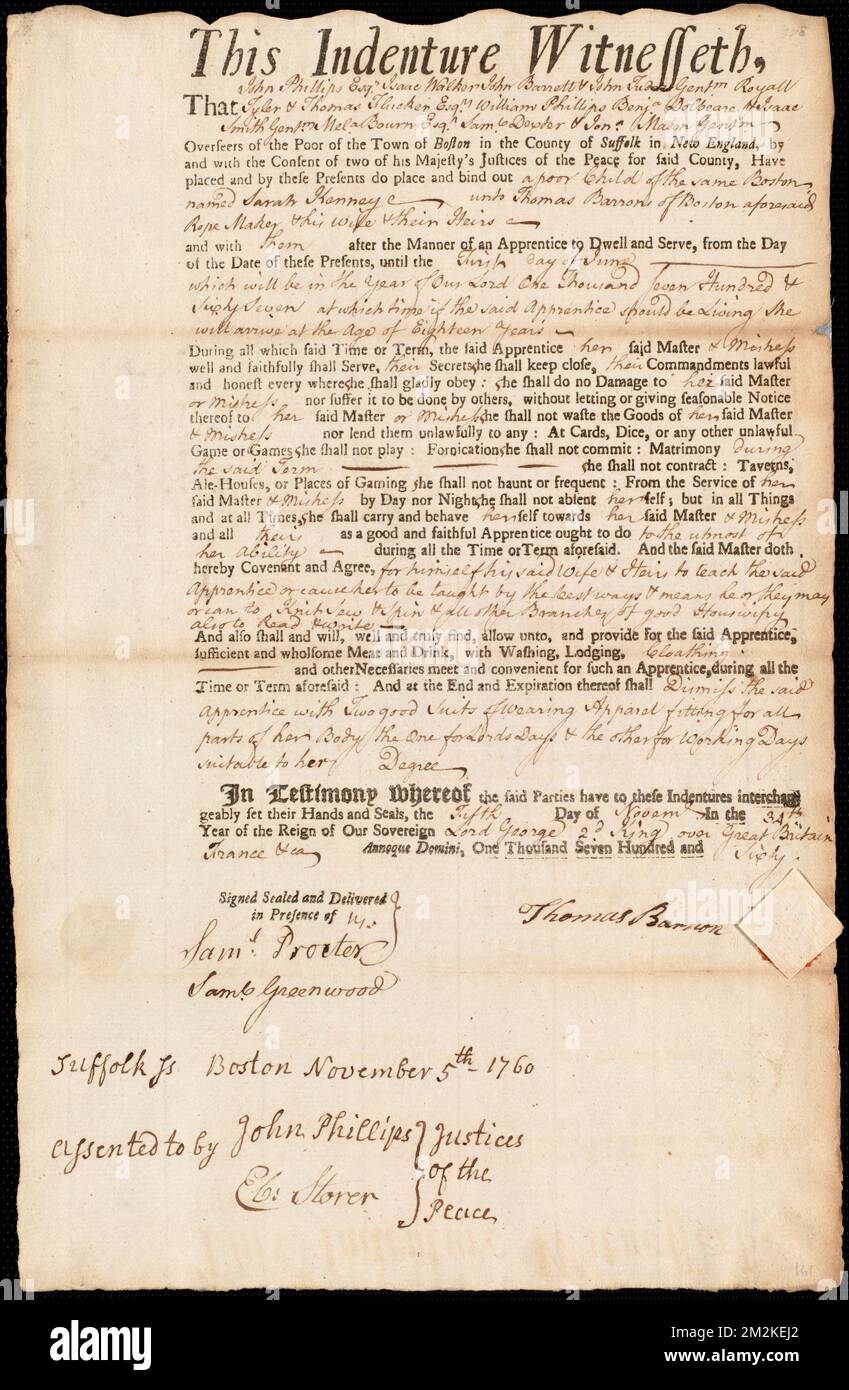 This Indenture Witnesseth,
John Phillips Esqr. Isaac Walker John Barrett & John Tudor Gentm Royall
That Tyler & Thomas Flucker Esqrs. William Phillips Benja Dolbeare & Isaac
Smith Gentm Mela Bourn Esqr. Saml Dexter & Jona. Mason Gentm
Overseers of the Poor of the Town of Boston in the County of Suffolk in New England, by
and with the Consent of two of his Majesty's Justices of the Peace for said County, Have
placed and by these Presents do place and bind out a poor Child of the same Boston
named Sarah Kenney unto Thomas Barrons of Boston aforesaid
Rope Maker & his Wife & their Heirs
and with them after the Manner of an Apprentice to Dwell and Serve, from the Day
of the Date of these Presents, until the First day of June
which will be in the Year of Our Lord One Thousand Seven Hundred &
Sixty Seven at which time if the said Apprentice should be Living She
will arrive at the Age of Eighteen Years
During all which said Time or Term, the said Apprentice her said Master & Mistress
well and faithfully shall Serve, their Secrets she shall keep close, their Commandments lawful
and honest every where she shall gladly obey: she shall do no Damage to her said Master
or Mistress nor suffer it to be done by others, without letting or giving seasonable Notice
thereof to her said Master or Mistress she shall not waste the Goods of her said Master
& Mistress nor lend them unlawfully to any: At Cards, Dice, or any other unlawful
Game or Games she shall not play: Fornication she shall not commit: Matrimony during
the said Term she shall not contract: Taverns,
Ale-Houses, or Places of Gaming she shall not haunt or frequent: From the Service of her
said Master & Mistress by Day nor Night she shall not absent herself; but in all Things
and at all Times she shall carry and behave herself towards her said Master & Mistress
and all theirs as a good and faithful Apprentice ought to do to the utmost of
her Ability during all the Time or Term aforesaid. And the said Master doth
hereby Covenant and Agree, for himself his said Wife & Heirs to teach the said
Apprentice or cause her to be taught by the best ways & means he or they may
or can to Knit Sew & Spin & all other Branches of good Houswifry
also to Read & write
And also shall and will, well and truly find, allow unto, and provide for the said Apprentice,
sufficient and wholsome Meat and Drink, with Washing, Lodging, Cloathing
and other Necessaries meet and convenient for such an Apprentice, during all the
Time or Term aforesaid: And at the End and Expiration thereof shall Dismiss the said
Apprentice with Two good Suits of Wearing Apparel fitting for all
parts of her Body the One for Lords Days & the other for Working Days
suitable to her Degree
In Testimony whereof the said Parties have to these Indentures interchan-
geably set their Hands and Seals, the Fifth Day of Novemr In the 34th
Year of the Reign of Our Sovereign Lord George 2d King over Great Britain
France &ca Annoque Domini, One Thousand Seven Hundred and Sixty.
Signed Sealed and Delivered
in Presence of us.
Thomas Barron
Saml. Procter
Saml. Greenwood
Suffolk ss Boston November 5th 1760
assented to by John Phillips Justices
of the
Ebr Storer Peace
161
alamy
Image ID: 2M2KEJ2
www.alamy.com